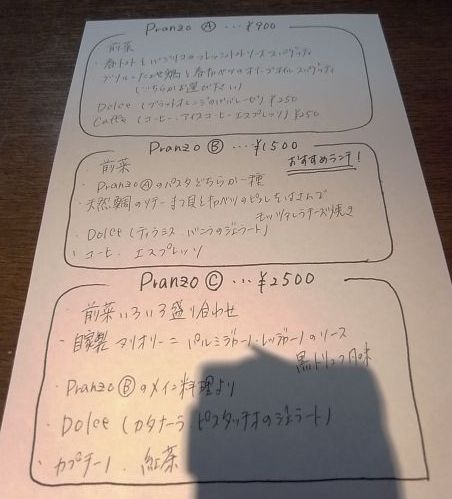 Pranzo Ⓐ …¥900
前菜
・春トマトとバジリコのフレッシュトマトソース スパゲッティ
グリルした若鶏と春キャベツのオリーブオイル スパゲッティ
(どちらかお選び下さい)
Dolce (ブラッドオレンジのババレーゼ) ¥250
Caffè (コーヒー、アイスコーヒー、エスプレッソ) ¥250
Pranzo Ⓑ …¥1500
おすすめランチ!
前菜
・Pranzo Ⓐのパスタどちらか一種
・天然鯛のソテー
モッツァレラチーズ焼き
・Dolce (ティラミス バニラのジェラート)
・コーヒー エスプレッソ
Pranzo Ⓒ …¥2500
前菜いろいろ盛り合わせ
・自家製 タリオリーニ パルミジャーノ・レッジャーノのソース
黒トリュフ風味
・Pranzo Ⓑのメイン料理より
・Dolce (カタナーラ ピスタッチオのジェラート)
・カプチーノ、紅茶